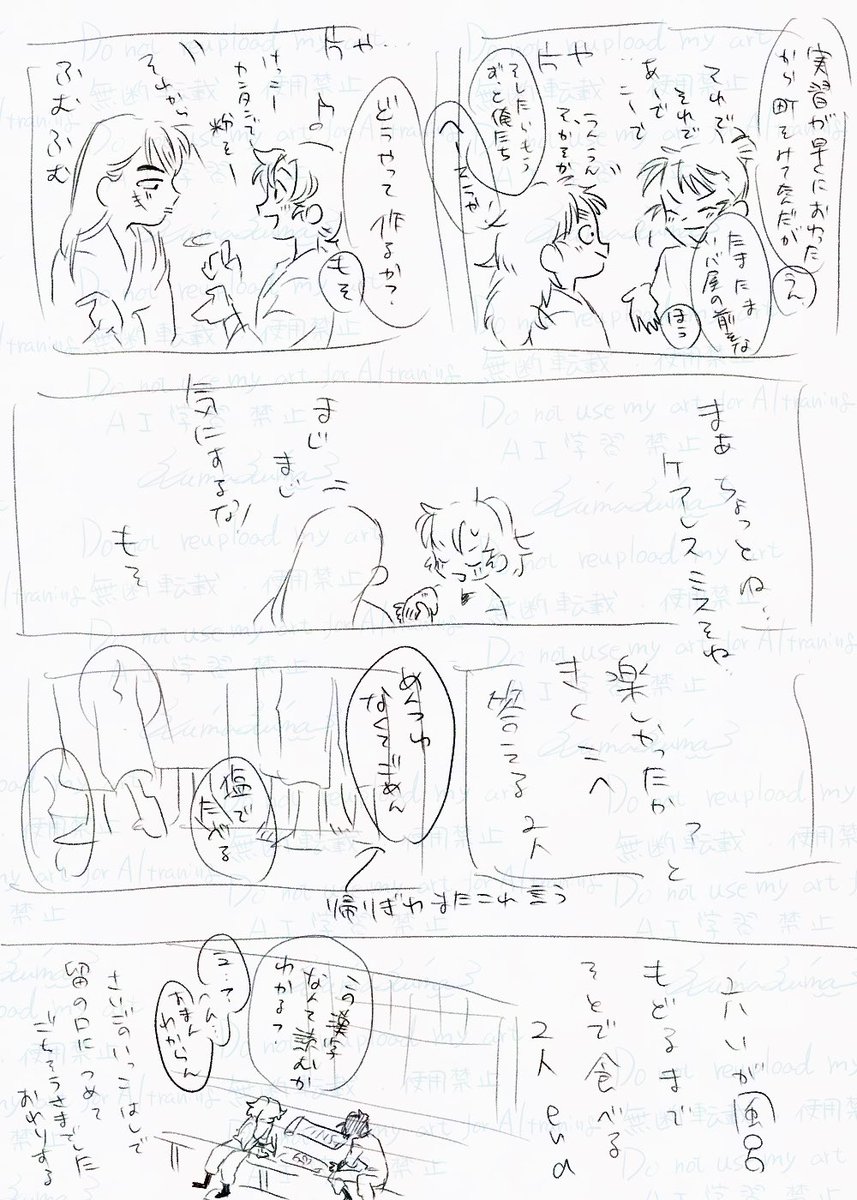 実習が早くにおわった
から町そけてたんだが
うん
たまたま
パン屋の前をな
ほう
それで
それで
あーで
こーで
うんうん
ずっと俺たち
へー
どうやって作るか?
もそ
けっこー
カンタンで
粉を
それから
ふむふむ
まあちょっとね…
ケアレスミスをね
もぐ
まじまじ
気にするな!
もそ
楽しかったか?と
きくこへ
答える2人
めんつゆ
なくてごめん
塩で
たべる
帰りぎわまたこれ言う
六いが風呂
もどるまで
そとで食べる
2人 end
この漢字
なんて読むか
わかるっ?
あまん
わからん
さいごのいっこはしで
留の口につめて
ごちそうさまでした
おわりする
Do not reupload my art
無断転載・使用禁止
Do not use my art for AI traning
AI学習禁止